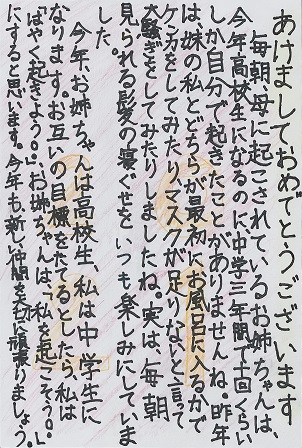 あけましておめでとうございます。
毎朝、母に起こされているお姉ちゃんは、
今年高校生になるのに、中学三年間で十回くらい
しか自分で起きたことがありませんね。昨年
は、妹の私とどちらが最初にお風呂に入るかで
ケンカをしてみたり、マスクが足りないと言って
大騒ぎをしてみたりしましたね。実は、毎朝
見られる髪の寝ぐせをいつも楽しみにしていま
した。
今年、お姉ちゃんは高校生、私は中学生に
なります。お互いの目標をたてるとしたら、私は
「はやく起きよう。」お姉ちゃんは、「私を起こそう。」
にすると思います。今年も新しい仲間を大切に頑張りましょう。